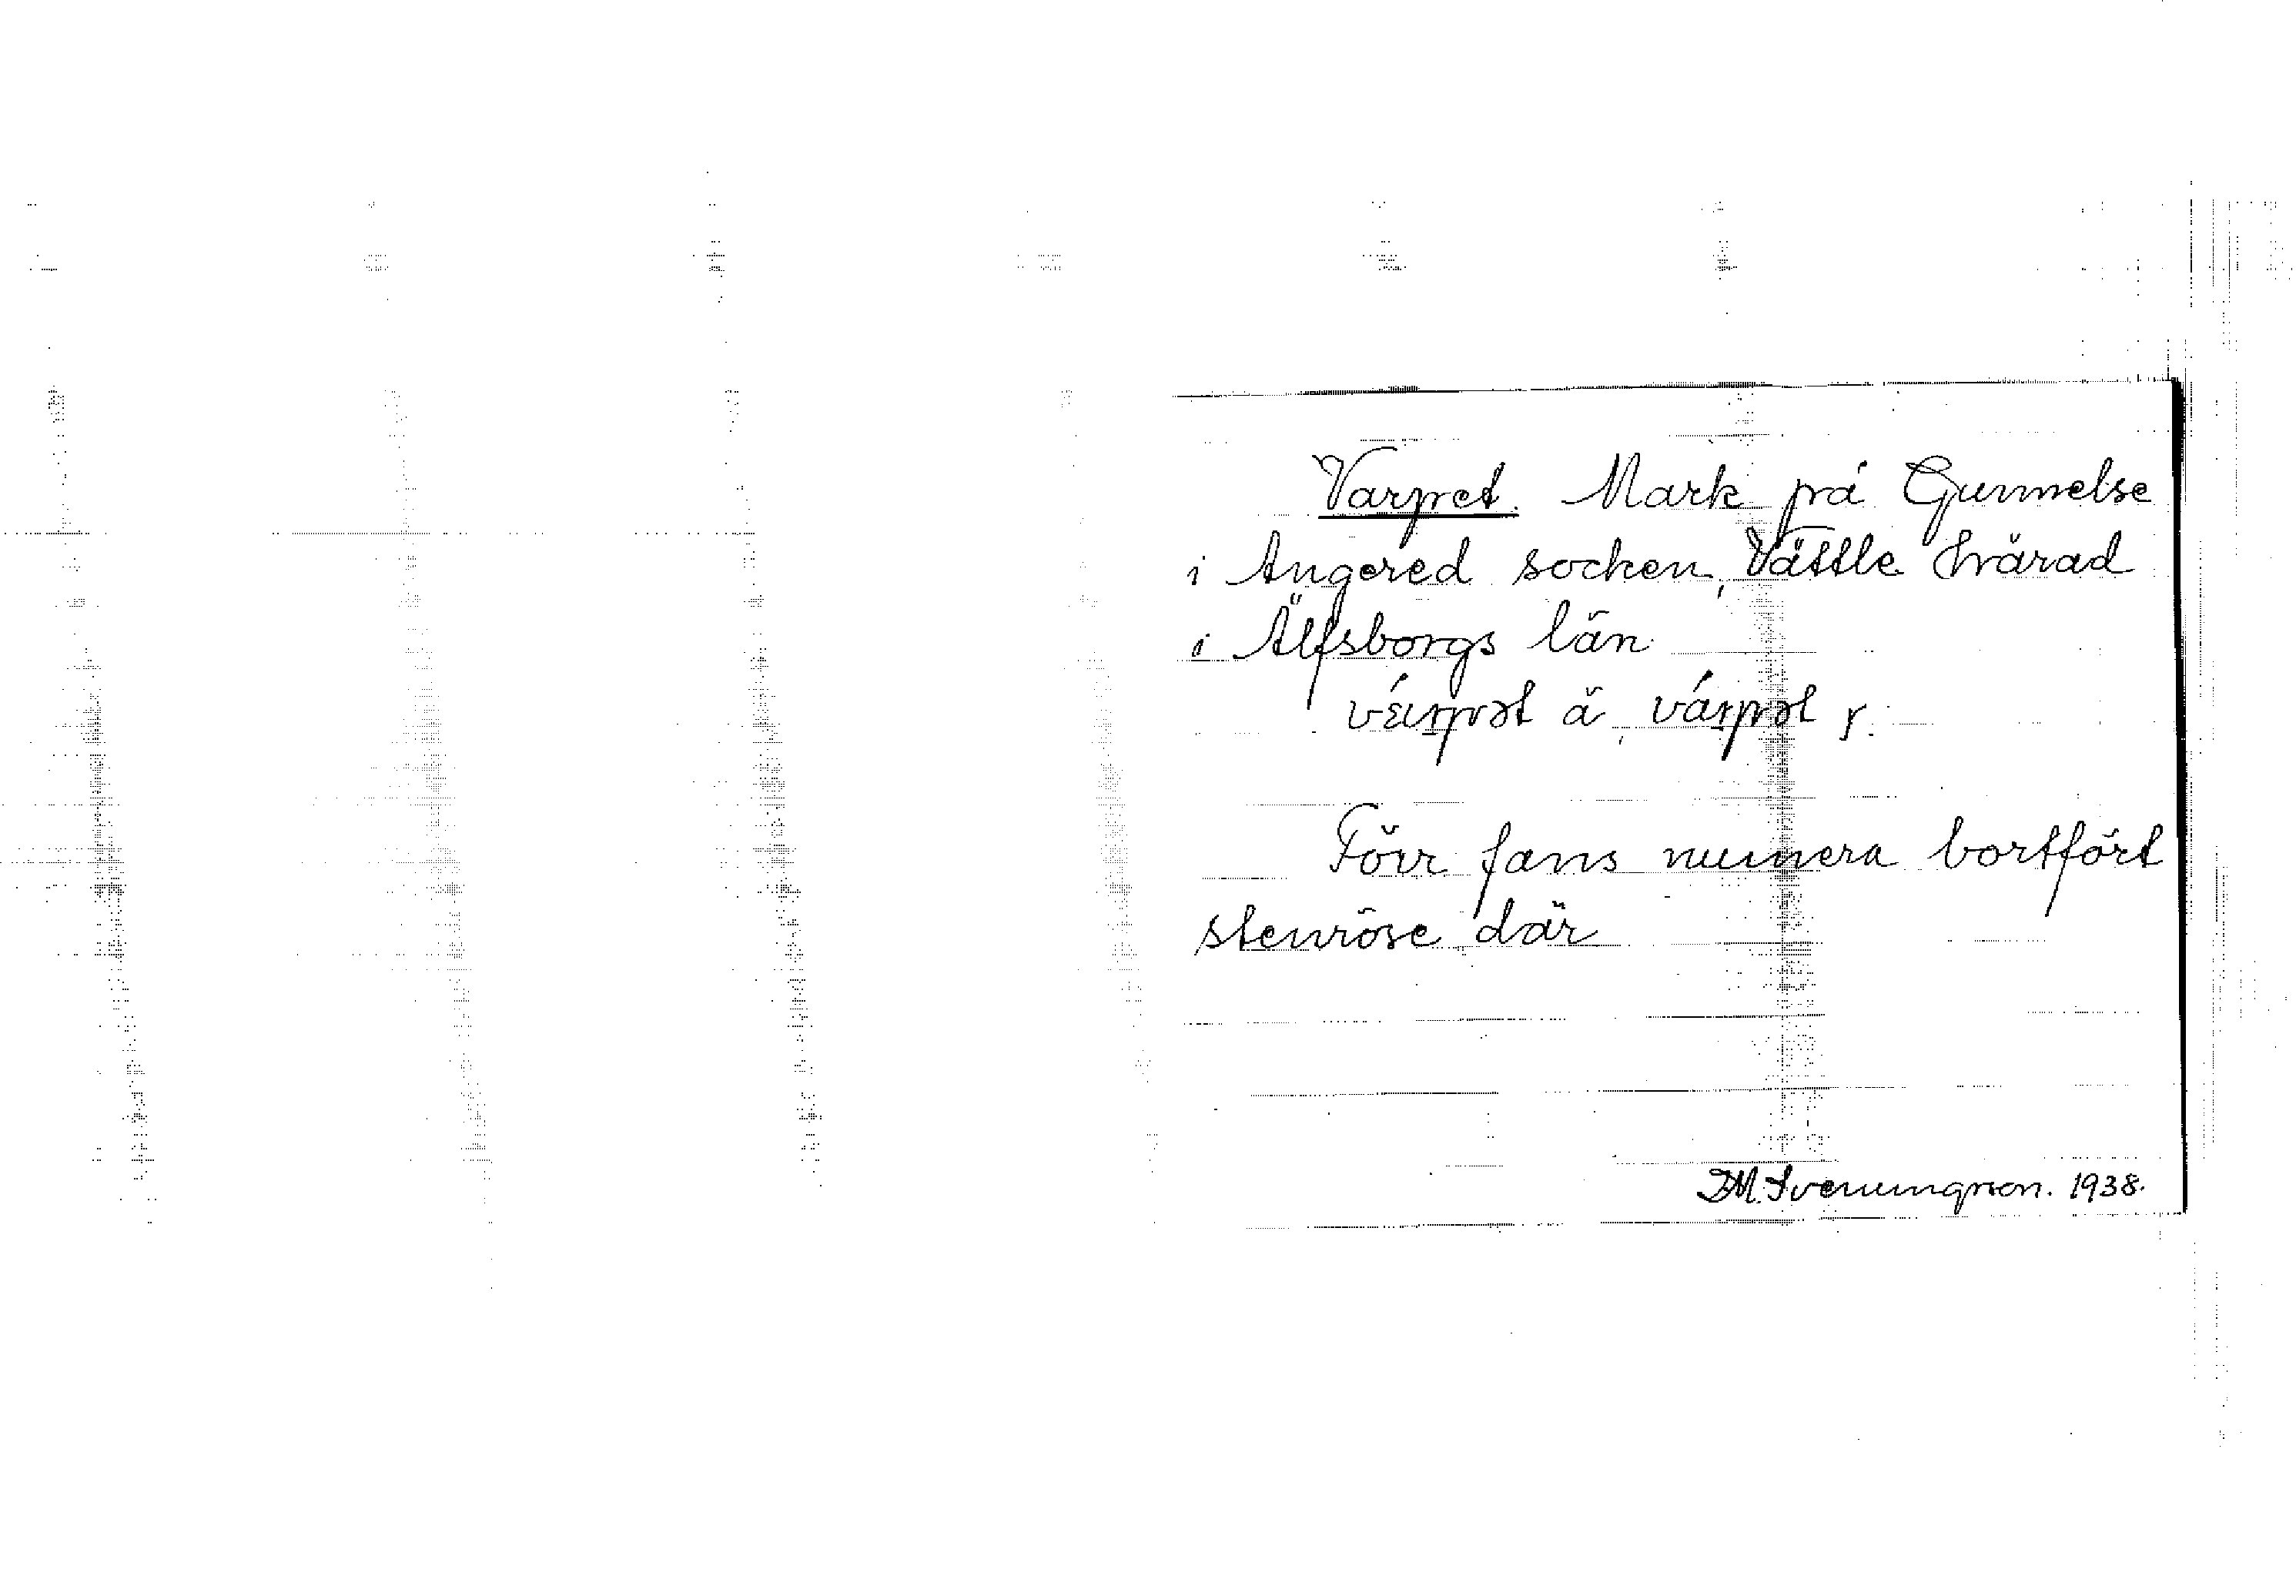 Varpet. Mark på Gunnelse
i Angered socken, Vättle härad
i Älfsborgs län
várpət ä várpət r.
Förr fans numera bortfört
stenröse där
D.M. Svenningson. 1938.